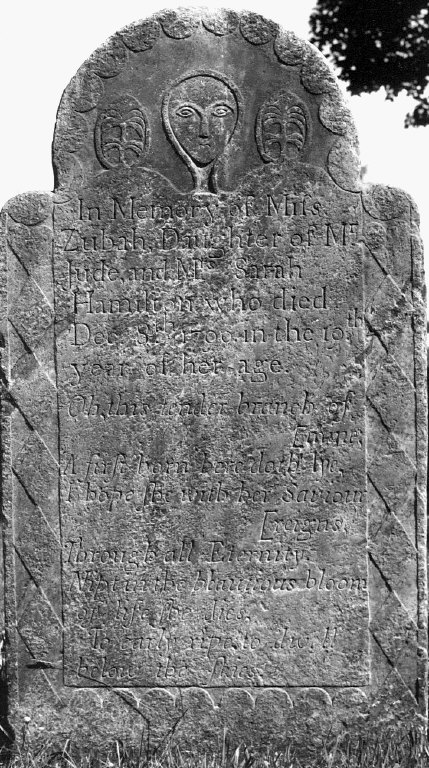 In Memory of Miſs.
Zubah, Daughter of Mr.
Jude, and Mrs. Sarah
Hamilton who died
Dec. in the 10th
year of her age.
Oh, this tender branch of
A first born here doth lye,
I hope ſhe with her Saviour
Through all Eternity.
Nipt in the bloom
of life ſhe dies,
To early ripe, to dwell
below the ſkies.